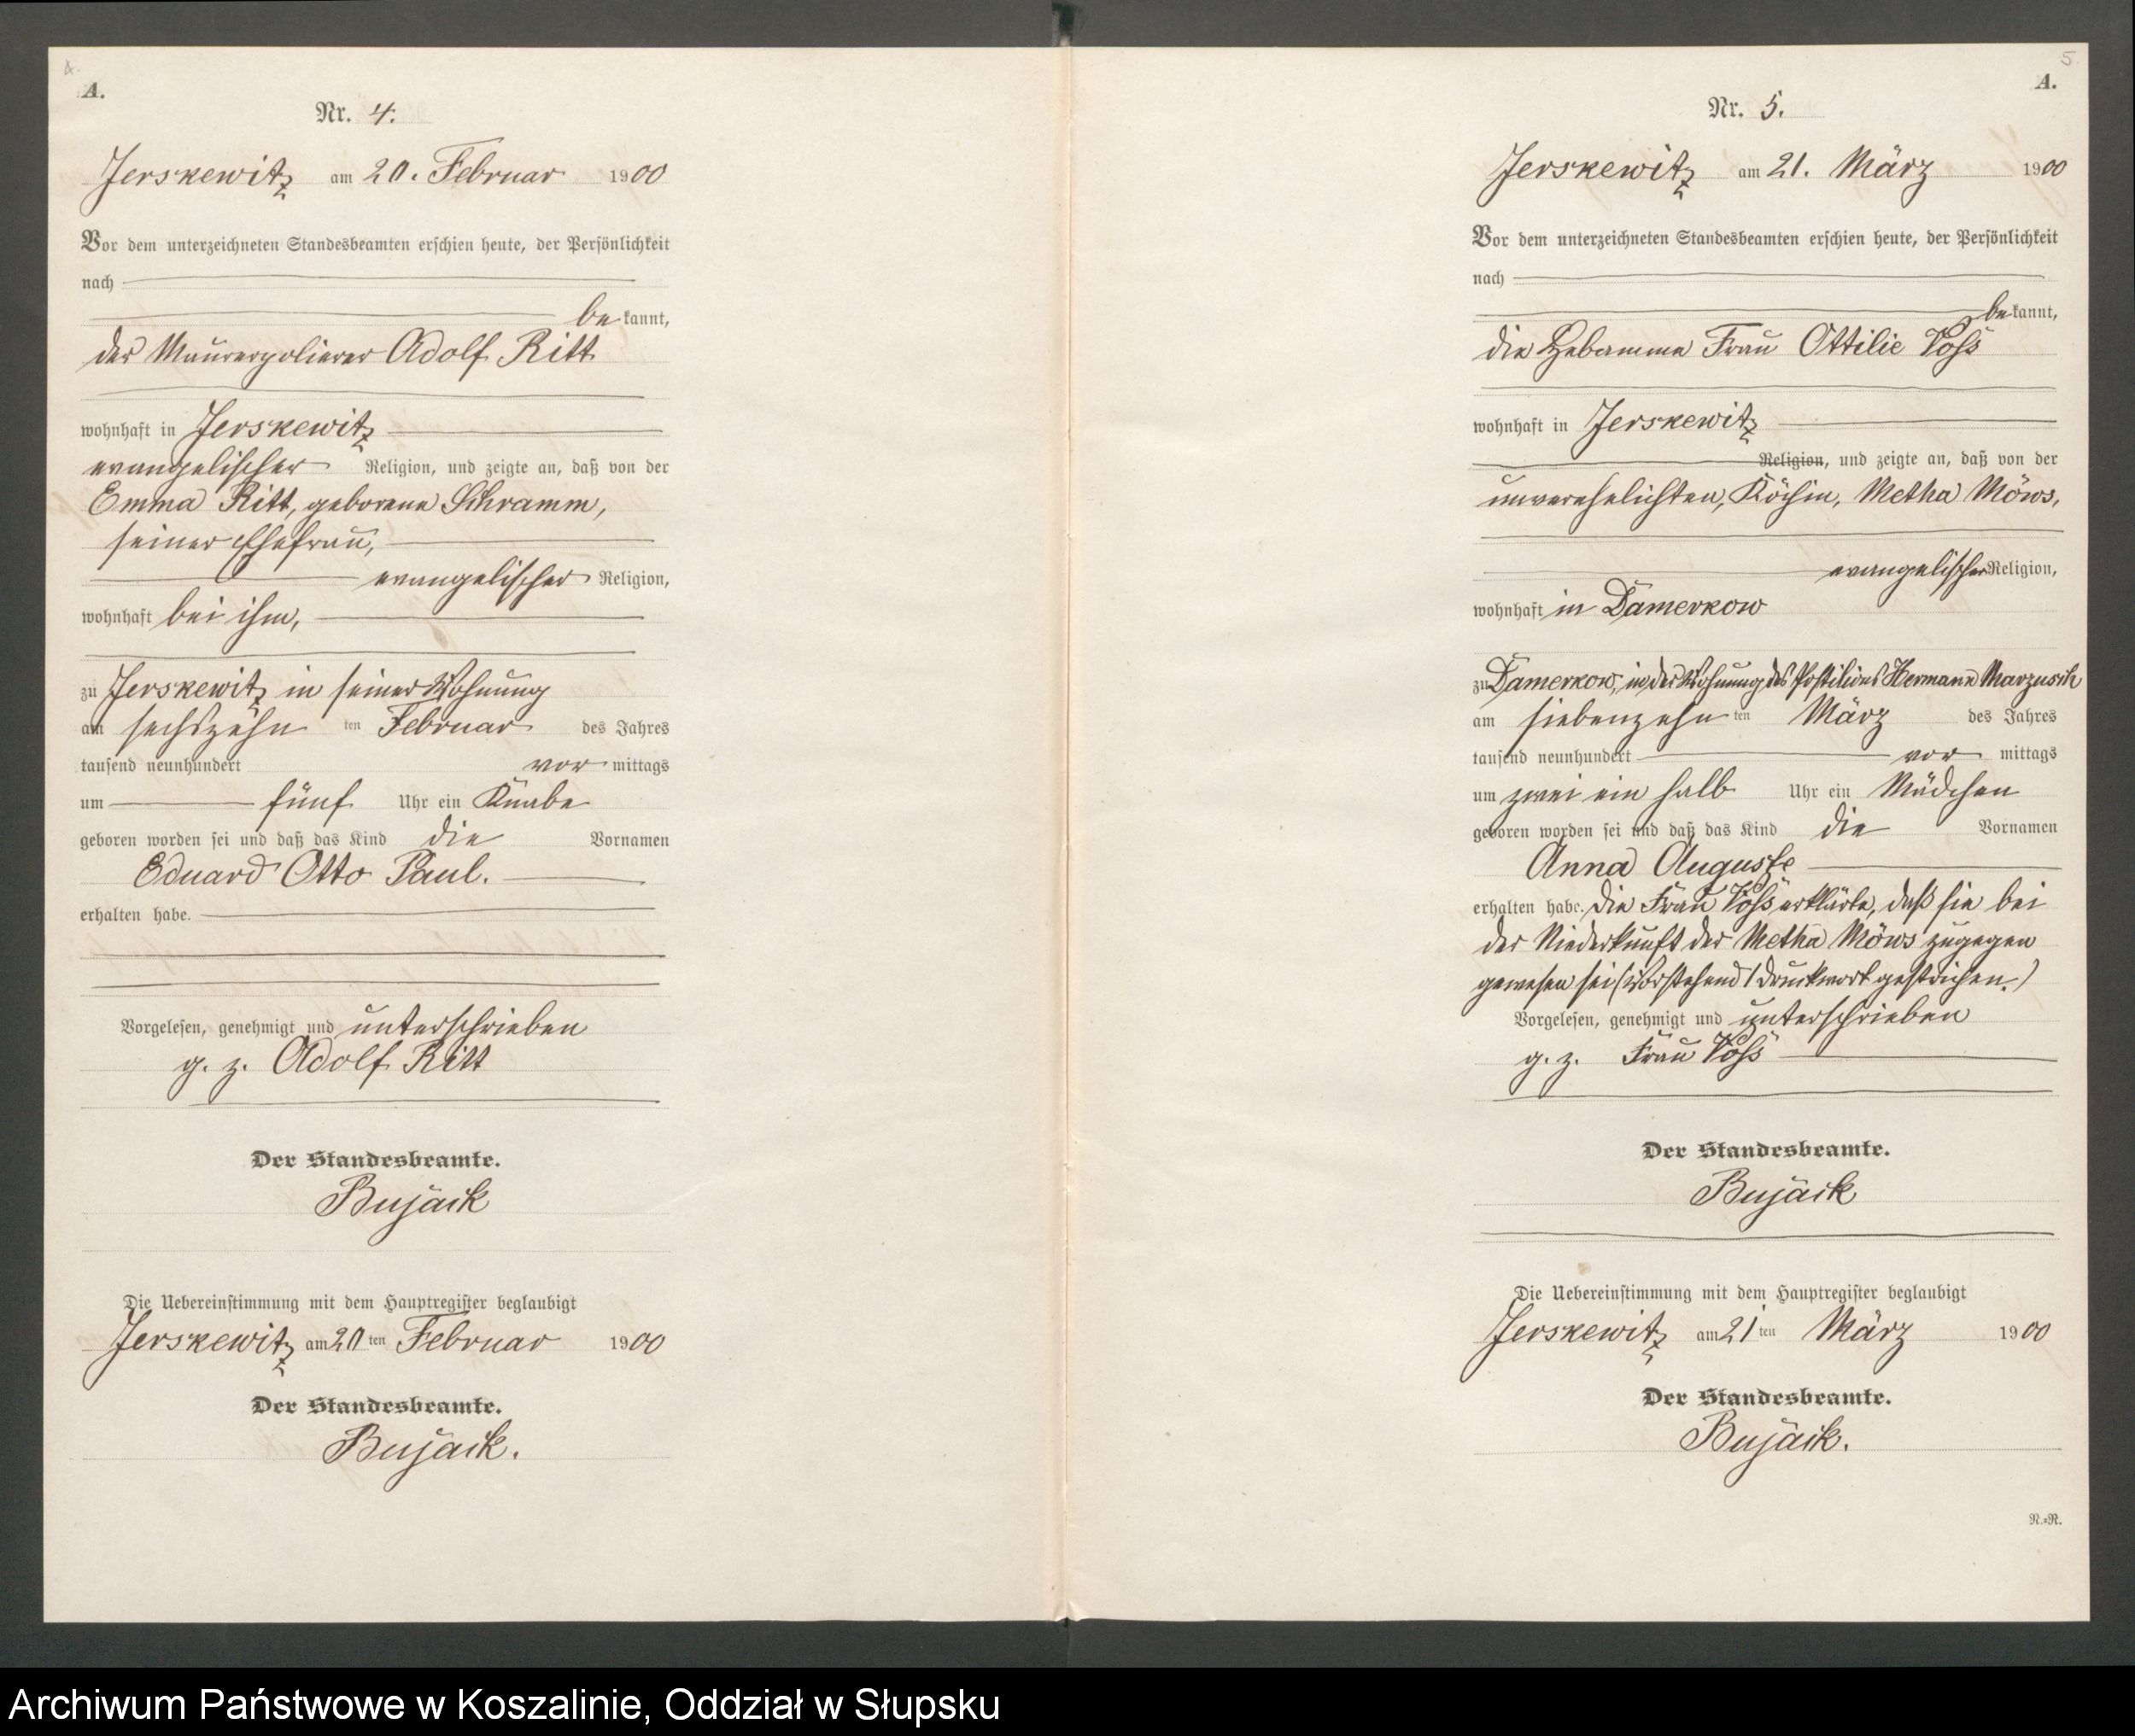 4.
A.
Nr. 4.
Jerskewitz am 20. Februar 1900
Vor dem unterzeichneten Standesbeamten erschien heute, der Persönlichkeit
nach
be kannt,
der Maurerpolierer Adolf Ritt
wohnhaft in Jerskewitz
evangelischer Religion, und zeigte an, daß von der
Emma Ritt, geborene Schramm,
seiner Ehefrau,
evangelischer Religion,
wohnhaft bei ihm,
zu Jerskewitz in seiner Wohnung
am sechszehn ten Februar des Jahres
tausend neunhundert vor mittags
um fünf Uhr ein Knabe
geboren worden sei und daß das Kind die Vornamen
Eduard Otto Paul.
erhalten habe.
Vorgelesen, genehmigt und unterschrieben
g. z. Adolf Ritt
Der Standesbeamte.
Bujack
Die Uebereinstimmung mit dem Hauptregister beglaubigt
Jerskewitz am 20 ten Februar 1900
Der Standesbeamte.
Bujack.
5
A.
Nr. 5.
Jerskewitz am 21. März 1900
Vor dem unterzeichneten Standesbeamten erschien heute, der Persönlichkeit
nach
be kannt,
die Hebamme Frau Ottilie Voß
wohnhaft in Jerskewitz
Religion, und zeigte an, daß von der
unverehelichten, Köchin, Metha Möws,
evangelischer Religion,
wohnhaft in Damerkow
zu Damerkow, in der Wohnung des Postilions Hermann Marzusch
am siebenzehn ten März des Jahres
tausend neunhundert vor mittags
um zwei ein halb Uhr ein Mädchen
geboren worden sei und daß das Kind die Vornamen
Anna Auguste
erhalten habe. Die Frau Voß erklärte, daß sie bei
der Niederkunft der Metha Möws zugegen
gewesen sei (Vorstehend 1 Druckwort gestrichen.)
Vorgelesen, genehmigt und unterschrieben
g. z. Frau Voß
Der Standesbeamte.
Bujack
Die Uebereinstimmung mit dem Hauptregister beglaubigt
Jerskewitz am 21 ten März 1900
Der Standesbeamte.
Bujack.
N.=R.
Archiwum Państwowe w Koszalinie, Oddział w Słupsku